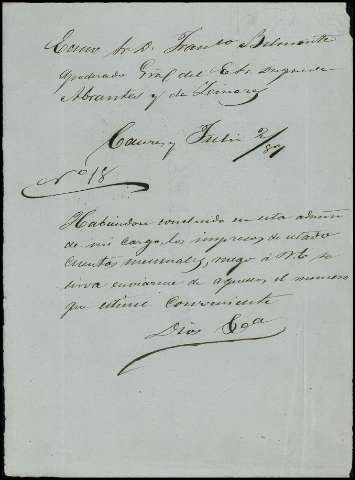 Excmo Sr. D. Franco Belmonte
Apoderado Gral del E. Sr. Duque de
Abrantes y de Linares
Caceres y Julio 2/87
No 18
Habiendose concluido en esta admon
de mi cargo, los impresos de estado
cuentas mensuales, ruego á V. se
sirva enviarme de aquellos, el numero
que estime conveniente
Dios &a